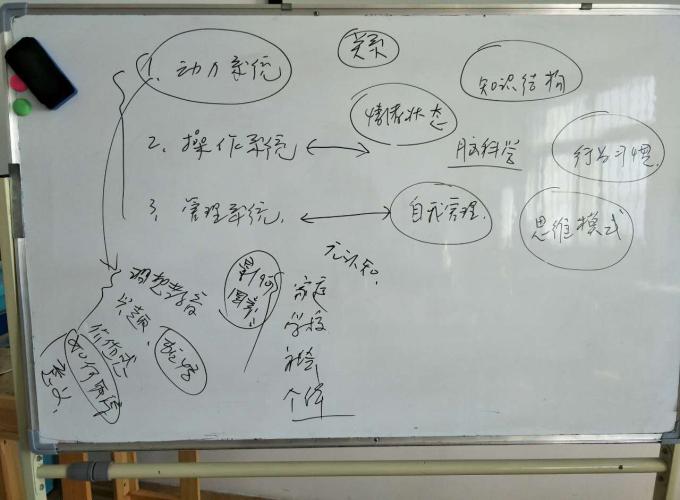 1. 动力系统
关系
知识结构
情绪状态
2、操作系统
脑科学
行为习惯
3、管理系统
自我管理
思维模式
元认知
理想教育
兴趣
价值感
意义
影响
因素
家庭
学校
社会
个体